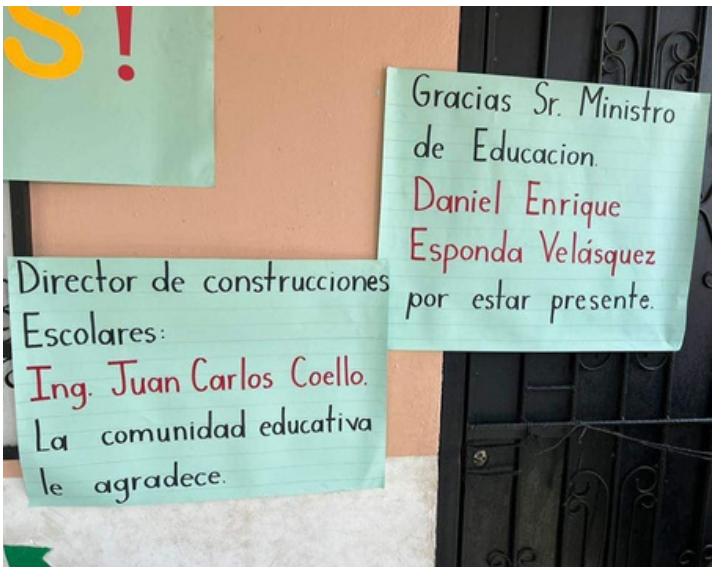 S!
Gracias Sr. Ministro
de Educacion.
Daniel Enrique
Esponda Velásquez
por estar presente.
Director de construcciones
Escolares:
Ing. Juan Carlos Coello.
La comunidad educativa
le agradece.